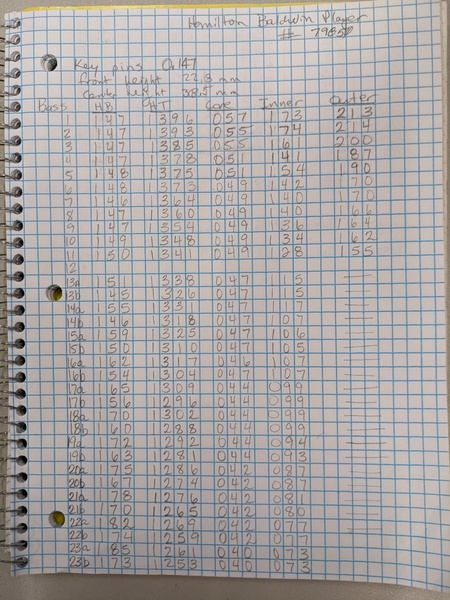 Hamilton Baldwin Player
# 79850
Key pins 0.147
front height 22.3 mm
center height 38.5 mm
Bass HB HT Core Inner Outer
1 147 1396 057 173 213
2 147 1393 055 174 214
3 147 1385 055 161 200
4 147 1378 051 141 187
5 148 1375 051 154 190
6 148 1373 049 142 170
7 146 1364 049 140 170
8 147 1360 049 140 166
9 147 1354 049 136 164
10 149 1348 049 134 162
11 150 1341 049 128 155
12
13a 151 1338 047 115 —
13b 145 1326 047 115 —
14a 155 1331 047 117 —
14b 146 1318 047 107 —
15a 159 1325 047 106 —
15b 150 1310 047 105 —
16a 162 1317 046 107 —
16b 154 1304 047 107 —
17a 165 1309 044 099 —
17b 156 1296 044 099 —
18a 170 1302 044 099 —
18b 160 1288 044 099 —
19a 172 1292 044 094 —
19b 163 1281 044 093 —
20a 175 1286 042 087 —
20b 167 1274 042 087 —
21a 178 1276 042 081 —
21b 170 1265 042 080 —
22a 182 1269 042 077 —
22b 174 1259 042 077 —
23a 185 1261 040 073 —
23b 173 1253 040 073 —